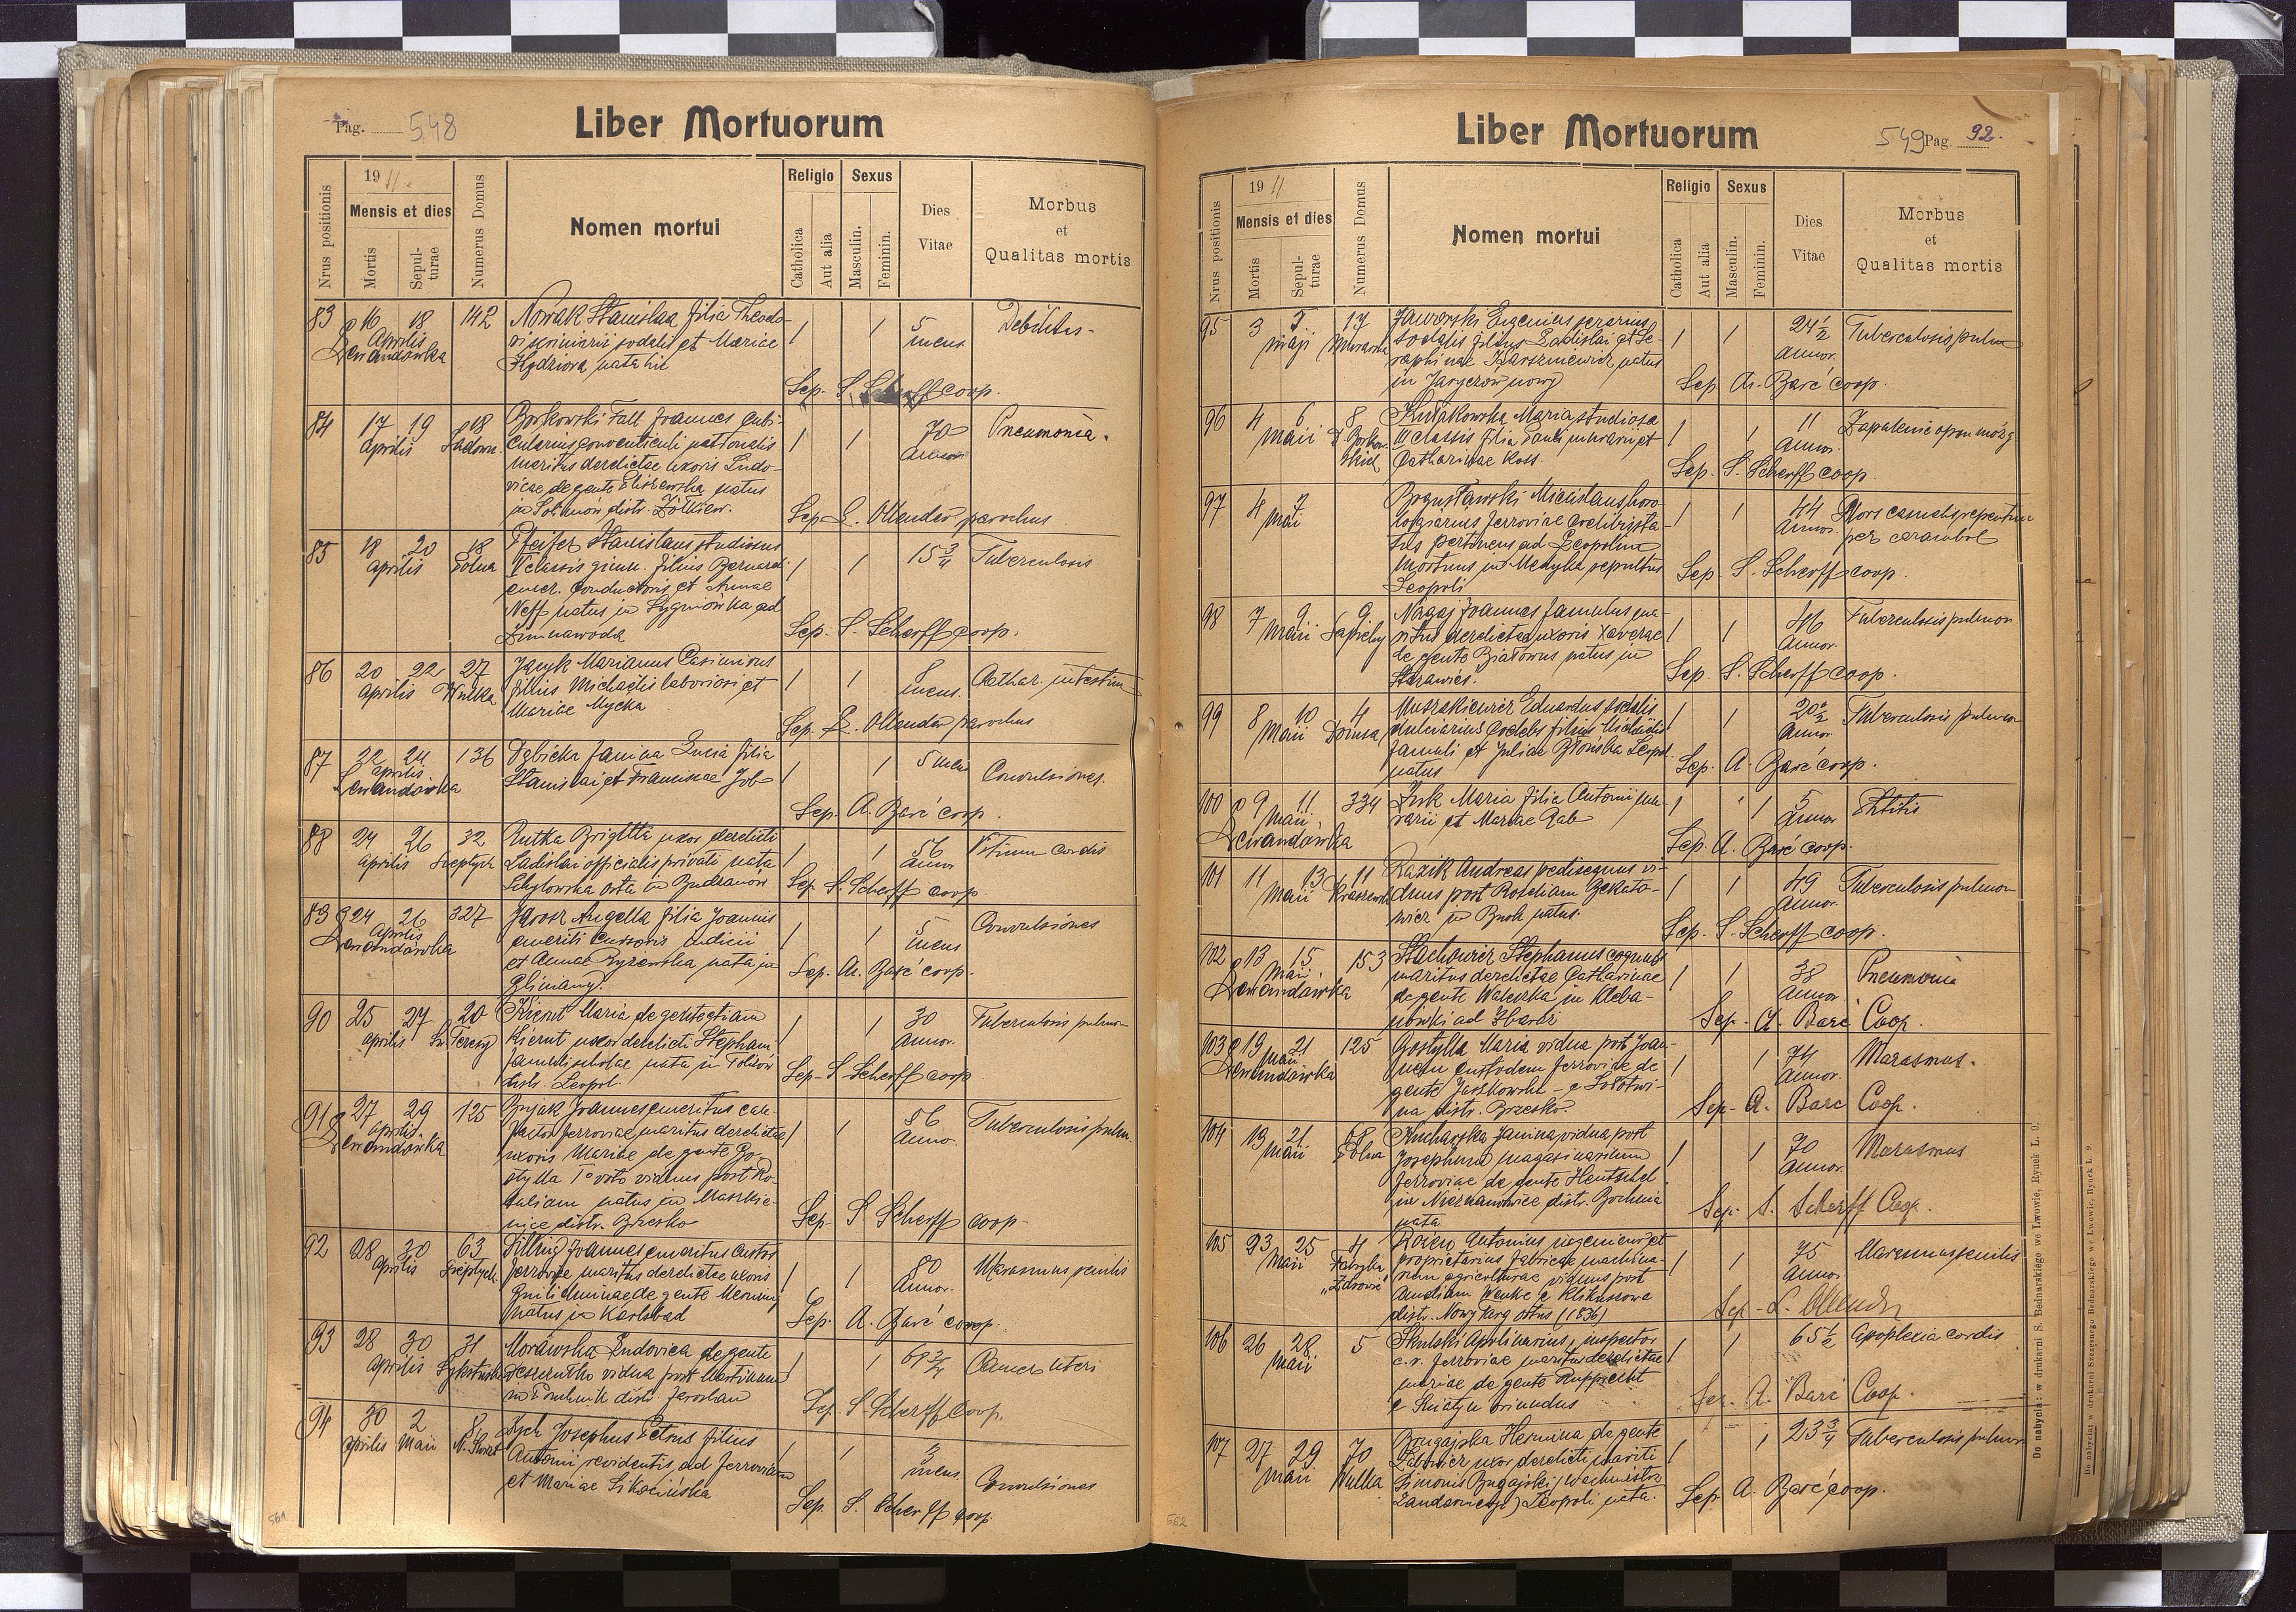 Pag. 548
Liber Mortuorum
Nrus positionis
1911.
Mensis et dies
Mortis
Sepulturae
Numerus Domus
Nomen mortui
Religio
Catholica
Aut alia
Sexus
Masculin.
Feminin.
Dies
Vitae
Morbus
et
Qualitas mortis
83 16 18 142 Nowak Stanislaa filia Theodo- 1 1 5 Debilitas-
Aprilis sodalis et Mariae mens.
Lewandówka nata hic
Sep. S. Scherff coop.
84 17 19 18 Borkowski Fall Joannes cubi- 1 1 70 Pneumonia.
Aprilis Sadown. cularius conventiculi nationalis annor.
maritus derelictae uxoris Ludo-
vicae de gente natus
in distr. Żółkiew.
Sep. L. Ollender parochus
85 18 20 18 Pfeifer Stanislaus studiosus 1 1 15 3/4 Tuberculosis
Aprilis Polna V classis gimn. filius Bernardi
emer. conductoris et Annae
Neff natus in Sygniówka ad
Zimnawoda
Sep. S. Scherff coop.
86 20 22 27 Jacyk Marianus Casimirus 1 1 mens. Cathar. intestin
Aprilis Wulka filius Michaelis laboriosi et
Mariae Mycka
Sep. L. Ollender parochus
87 22 24 136 Dębicka Janina Lucia filia 1 1 5 mens Convulsiones.
Aprilis Stanislai et Franciscae Job
Lewandówka
Sep. A. Barć coop.
88 24 26 32 Rutka Brigitta uxor derelicti 1 1 56 Vitium cordis
Aprilis Szeptyck Ladislai officialis privati nata annor
orta in Budzanów
Sep. S. Scherff coop.
89 24 26 327 Jarosz Angella filia Joannis 1 1 5 Convulsiones
Aprilis emeriti cursoris iudicii mens
Lewandówka et Annae nata in
Gliniany.
Sep. A. Barć coop.
90 25 27 20 Kiernt Maria de gente 1 1 30 Tuberculosis pulmon
Aprilis Św Teresy Kiernt uxor derelicti Stephani annor.
famuli scholae nata in
distr. Leopol.
Sep. S Scherff coop
91 27 29 125 Bujak Joannes emeritus cale- 1 1 56 Tuberculosis pulm.
Aprilis factor ferroviae maritus derelictae anno.
Lewandówka uxoris Mariae de gente Go-
stylla 1° voto viduus post Ro-
saliam natus in Maszkie-
nice distr. Brzesko
Sep. S Scherff coop-
92 28 30 63 Joannes emeritus custos 1 1 80 Marasmus senilis
Aprilis Szeptyck ferroviae maritus derelictae uxoris annor.
de gente
natus in Karlsbad
Sep. A. Barć coop.
93 28 30 31 Morawska Ludovica de gente 1 1 69 3/4 Cancer uteri
Aprilis Sykstuska vidua post Martinum
in distr. Jaroslau
Sep. S. Scherff Coop.
94 30 2 8 Zych Josephus Petrus filius 1 1 3 Convulsiones
Aprilis Maii Antonii revidentis ad ferroviam mens.
et Mariae Sikocińska
Sep. S. Scherff coop.
561
Liber Mortuorum
549 Pag. 92.
Nrus positionis
1911
Mensis et dies
Mortis
Sepulturae
Numerus Domus
Nomen mortui
Religio
Catholica
Aut alia
Sexus
Masculin.
Feminin.
Dies
Vitae
Morbus
et
Qualitas mortis
95 3 5 17 Jaworski Eugenius 1 1 24 1/2 Tuberculosis pulm
maji Murarska sodalis filius Ladislai et Se- annor.
raphinae natus
in
Sep. A. Barć coop.
96 4 6 8 Kułakowska Maria studiosa 1 1 11 Zapalenie opon mózg
Maii III classis filia Pauli murarii et annor.
Catharinae Koss.
Sep. S. Scherff coop.
97 4 7 Bogusławski Miecislaus horo- 1 1 44 Mors casualis repentina
Maii logiarius ferroviae annor. per carambol
pertinens ad Leopolim
mortuus in Medyka sepultus
Leopoli
Sep. S. Scherff coop.
98 7 9 9 Nagaj Joannes famulus ma- 1 1 46 Tuberculosis pulmon
Maii Sapiehy ritus derelictae uxoris Xaverae annor.
de gente natus in
Starawieś.
Sep. S. Scherff coop.
99 8 10 4 Muszakiewicz Eduardus sodalis 1 1 20 1/2 Tuberculosis pulmon
Maii caelebs filius Michaelis annor.
famuli et Juliae Leopol.
natus
Sep. A. Barć coop.
100 9 11 334 Maria filia Antonii mu- 1 1 5 Phtitis
Maii rarii et Mariae Gab annor
Lewandówka
Sep. A. Barć coop.
101 11 13 11 Kazik Andreas pedisequus vi- 1 1 49 Tuberculosis pulmon
Maii Kraszewsk duus post Rosaliam
in natus.
Sep. S. Scherff coop.
102 13 15 153 Stachowicz Stephanus 1 1 38 Pneumonia
Maii. maritus derelictae Catharinae annor
Lewandówka de gente in Kleba-
nówki ad Zbaraż
Sep. A. Barć Coop.
103 19 21 125 Gostylla Maria vidua post Joan- 1 1 74 Marasmus.
Maii nem custodem ferroviae de annor.
Lewandówka gente Jaszkowska - e Sołotwi-
na distr. Brzesko.
Sep. A. Barć Coop.
104 19 21 68 Kucharska Janina vidua post 1 1 70 Marasmus
Maii Polna Josephum magasinarium annor.
ferroviae de gente Hentschel
in distr. Bochnia
nata
Sep. S. Scherff Coop.
105 23 25 4 Antonius ingenieur et 1 1 75 Marasmus senilis
Maii Fabryka proprietarius fabricae machina- annor.
"Zdrowie" rum agriculturae viduus post
e Klikuszowa
distr. Nowy Targ ortus (1836)
Sep. L. Ollender
106 26 28 5 Skulski Apolinarius, inspector 1 1 65 1/2 Apoplexia cordis
Maii c. r. ferroviae maritus derelictae
Mariae de gente Rupprecht
e Śniatyn oriundus
Sep. A. Barć Coop.
107 27 29 70 Bugajska Hermina de gente 1 1 23 3/4 Tuberculosis pulmon
Maii Wulka uxor derelicti mariti
Simonis Bugajski (Wachmistra
) Leopoli nata.
Sep. A. Barć coop.
562
Do nabycia: w drukarni S. Bednarskiego we Lwowie, Rynek L. 9.
Do nabycia: w drukarni Szczęsnego Bednarskiego we Lwowie, Rynek L. 9.